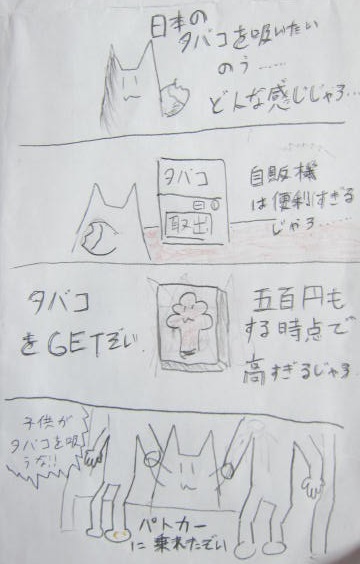 日本の
タバコを吸いたい
のぅ……
どんな感じじゃろ…
タバコ
取出
自販機
は便利すぎる
じゃろ……
タバコ
をGETぞい
五百円も
する時点で
高すぎるじゃろ
子供が
タバコを吸
うな!!
パトカー
に乗れたぞい